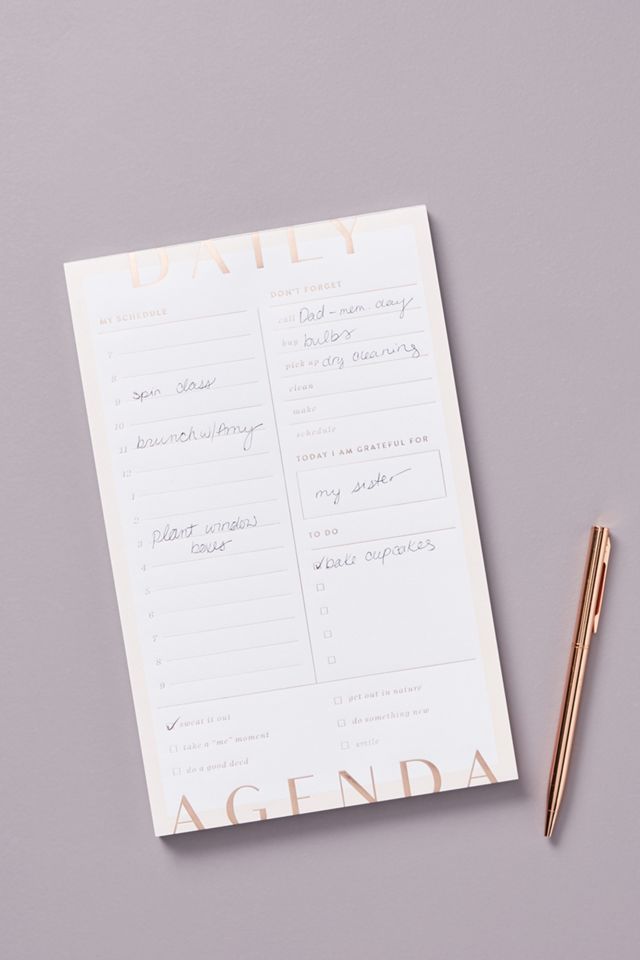 DAILY
MY SCHEDULE
7
8
9 spin class
10
11 brunch w/Amy
12
1
2
3 plant window
boxes
4
5
6
7
8
9
DON'T FORGET
call Dad - mem. day
buy bulbs
pick up dry cleaning
clean
make
schedule
TODAY I AM GRATEFUL FOR
my sister
TO DO
bake cupcakes
sweat it out
take a "me" moment
do a good deed
get out in nature
do something new
write
AGENDA